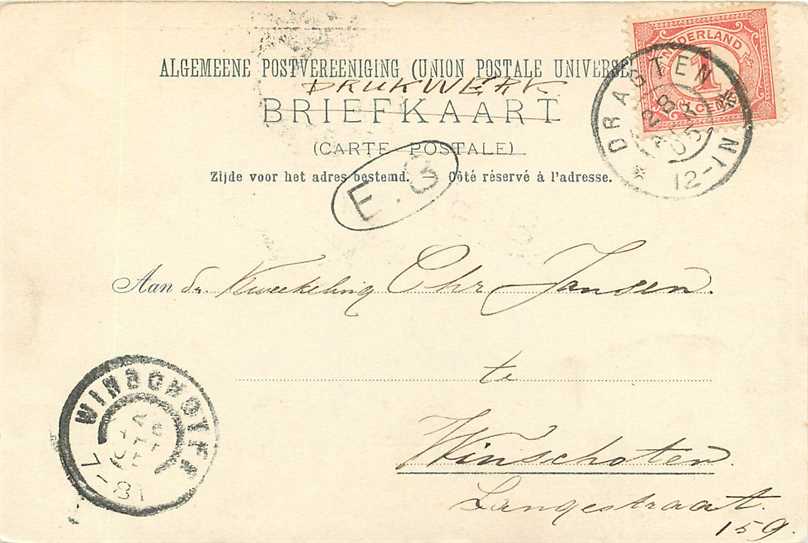 NEDERLAND
1
CENT
DRAGTEN
28
05
12-1N
ALGEMEENE POSTVEREENIGING (UNION POSTALE UNIVERSE
DRUKWERK
BRIEFKAART
(CARTE POSTALE)
Zijde voor het adres bestemd. Côté réservé à l'adresse.
E.G
Aan de Kweekeling Chr Jansen.
te
Winschoten
Langestraat.
159.
WINSCHOTEN
7-8